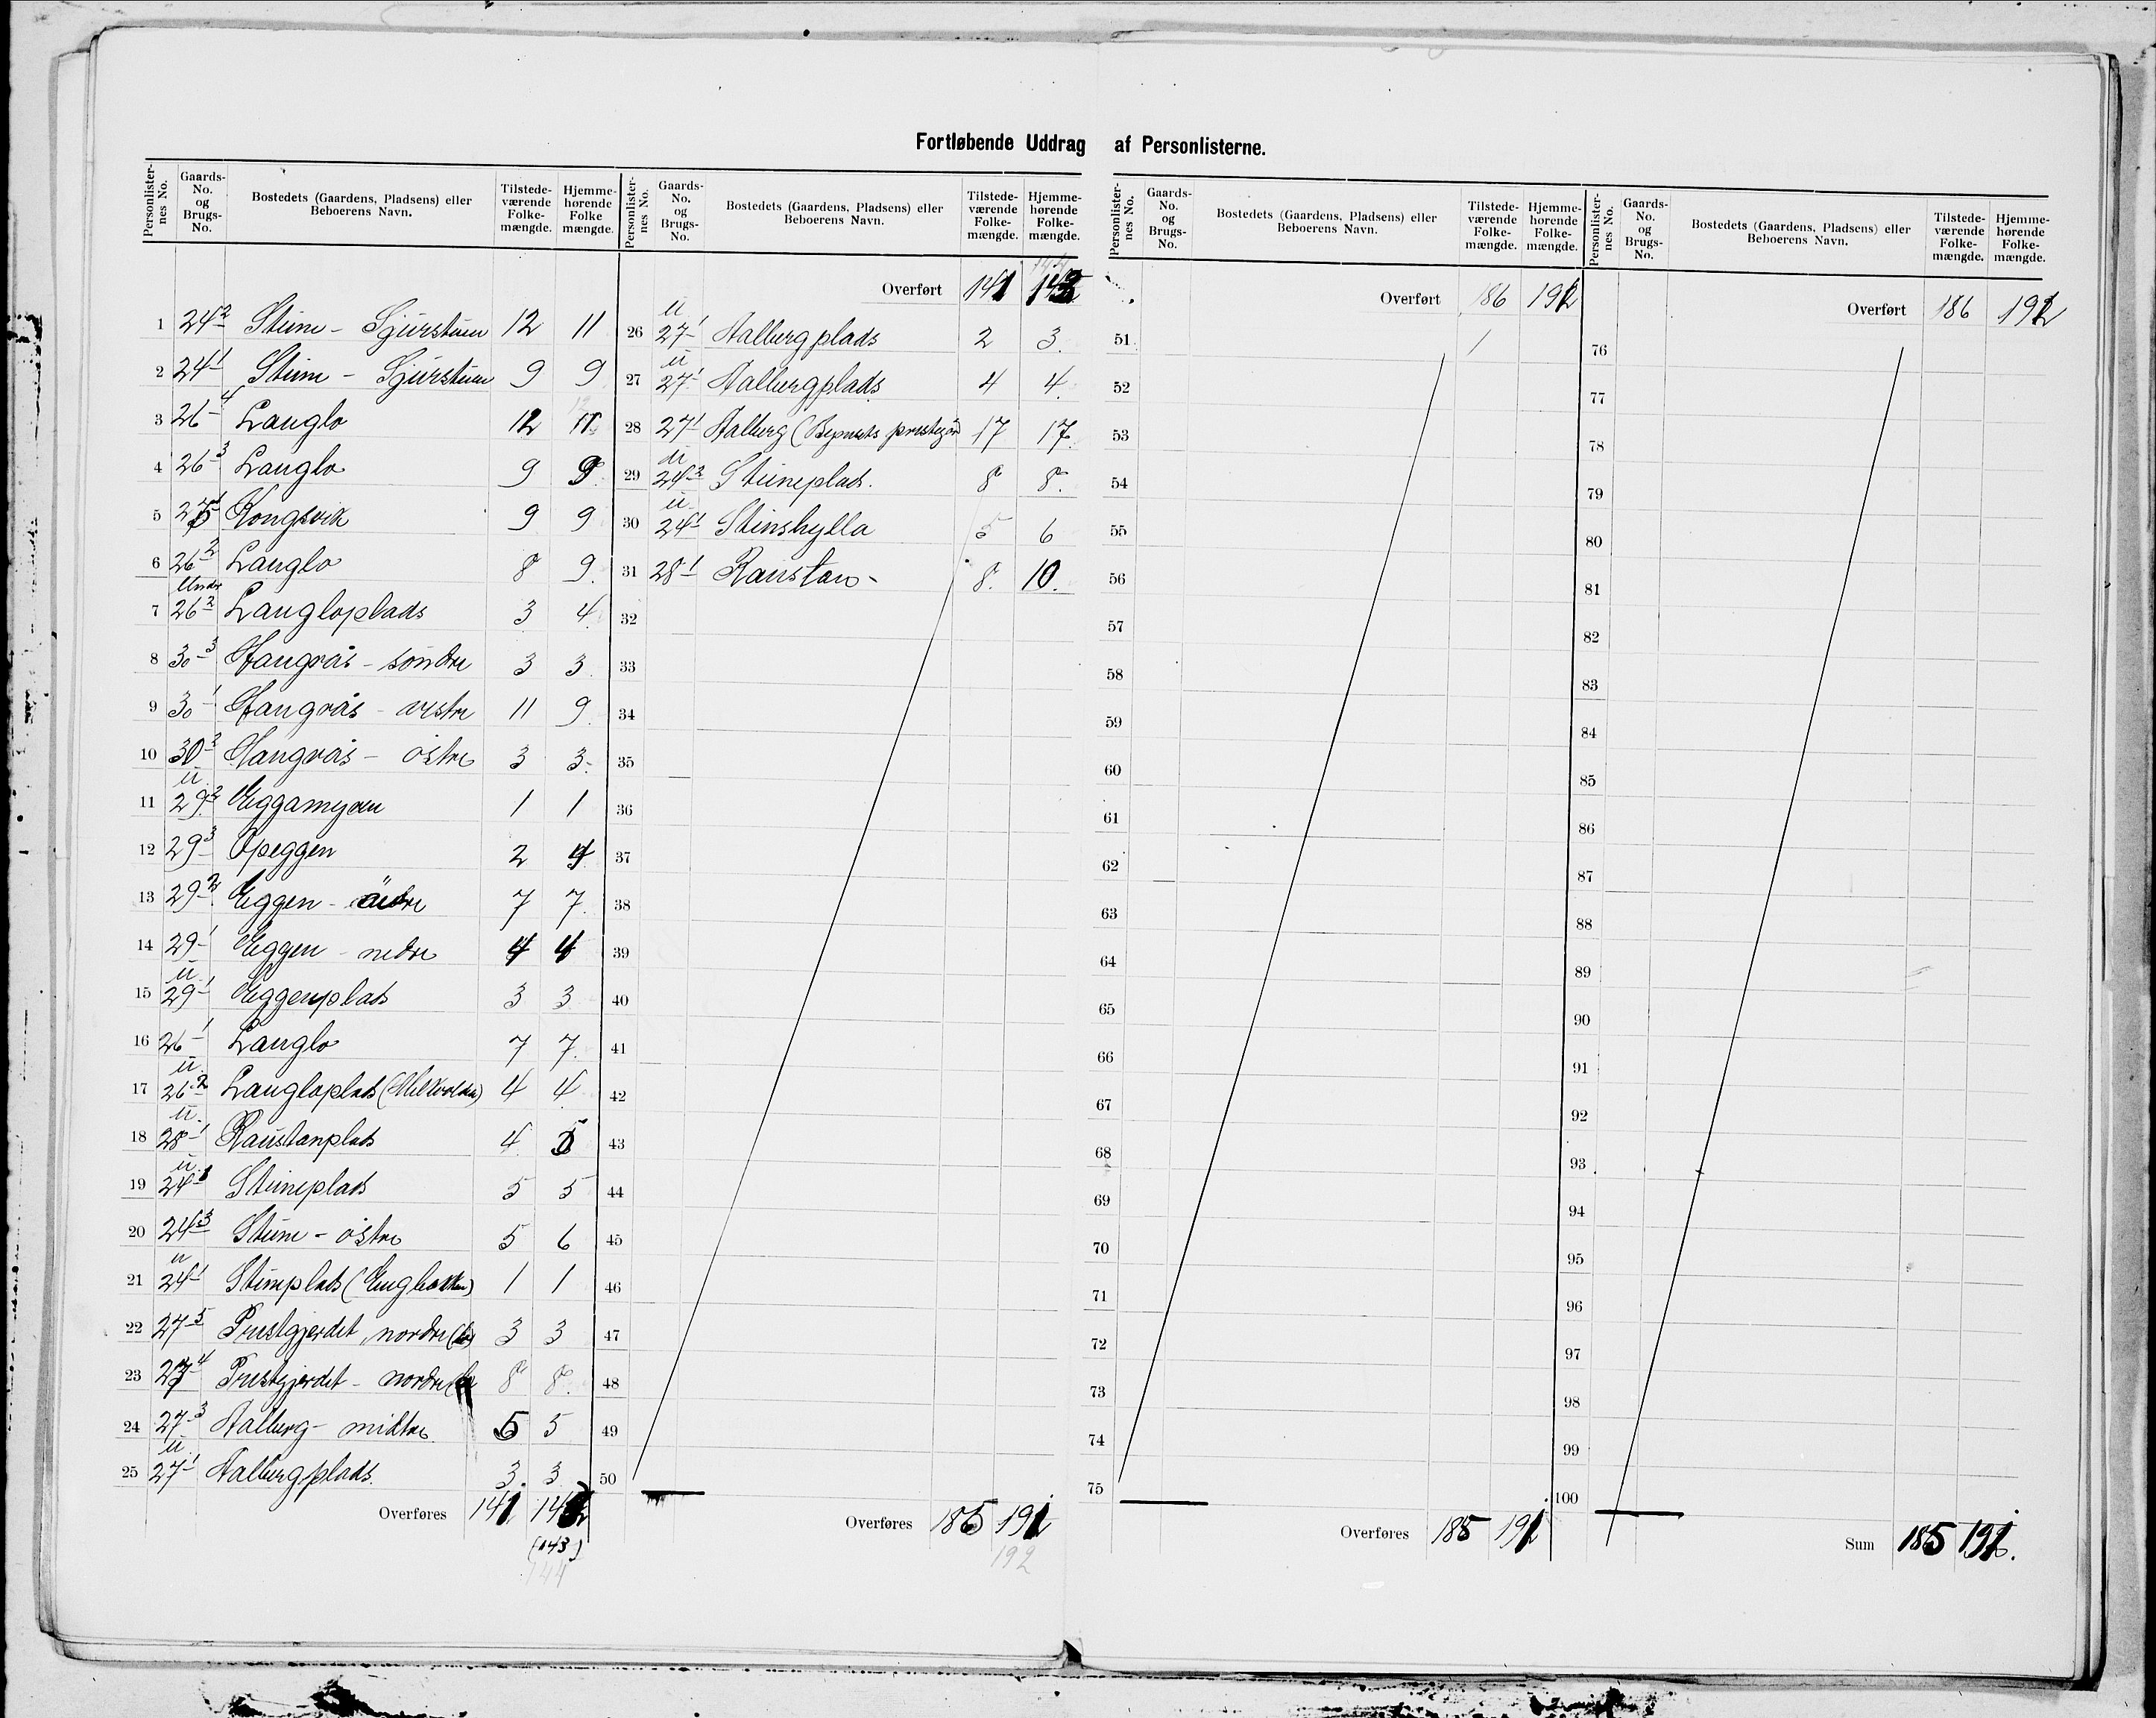 Fortløbende Uddrag af Personlisterne.
Personlisternes No. Gaards-No. og Brugs-No. Bostedets (Gaardens, Pladsens) eller Beboerens Navn. Tilstedeværende Folkemængde. Hjemmehørende Folkemængde.
1 24-2 Stene - Sjurstuen 12 11
2 24-1 Stene - Sjurstuen 9 9
3 26-4 Langlo 12 11
4 26-3 Langlo 9 9
5 27 Kongsvik 9 9
6 26-2 Langlo 8 9.
7 Under 26-2 Langloplads 3 4
8 30-3 Haugrås - söndre 3 3.
9 30-1 Haugrås - vestre 11 9.
10 30-2 Haugrås - östre 3 3.
11 u. 29-2 Eggamyren 1 1
12 29-3 Opeggen 2 4
13 29-2 Eggen - 7 7.
14 29-1 Eggen - nedre 4 4
15 u. 29-1 Eggenplads 3 3
16 26-1 Langlo 7 7.
17 u. 26-2 Langloplads 4 4
18 u. 28-1 Raustanplads 4 5
19 u. 24-1 Steneplads 5 5
20 24-3 Stene - östre 5 6
21 u 24-1 Steneplads (Engbakken) 1 1
22 27-5 Prestgjerdet, nordre 3 3
23 27-4 Prestgjerdet - nordre 8 8.
24 27-3 Aalberg - midtre 5 5
25 u. 27-1 Aalbergplads. 3. 3
Overføres 141 142
(143)
144
Personlisternes No. Gaards-No. og Brugs-No. Bostedets (Gaardens, Pladsens) eller Beboerens Navn. Tilstedeværende Folkemængde. Hjemmehørende Folkemængde.
144
Overført 141 143
26 u 27-1 Aalbergplads 2 3.
27 u 27-1 Aalbergplads 4 4.
28 27-1 Aalberg 17 17.
29 u 24-2 Steneplads. 8 8.
30 u. 24-1 Stenshylla 5 6
31 28-1 Raustan - 8. 10.
32
33
34
35
36
37
38
39
40
41
42
43
44
45
46
47
48
49
50
Overføres 185 191
192
Personlisternes No. Gaards-No. og Brugs-No. Bostedets (Gaardens, Pladsens) eller Beboerens Navn. Tilstedeværende Folkemængde. Hjemmehørende Folkemængde.
Overført 186 192
51
52
53
54
55
56
57
58
59
60
61
62
63
64
65
66
67
68
69
70
71
72
73
74
75
Overføres 185 191
Personlisternes No. Gaards-No. og Brugs-No. Bostedets (Gaardens, Pladsens) eller Beboerens Navn. Tilstedeværende Folkemængde. Hjemmehørende Folkemængde.
Overført 186 192
76
77
78
79
80
81
82
83
84
85
86
87
88
89
90
91
92
93
94
95
96
97
98
99
100
Sum 185 191.